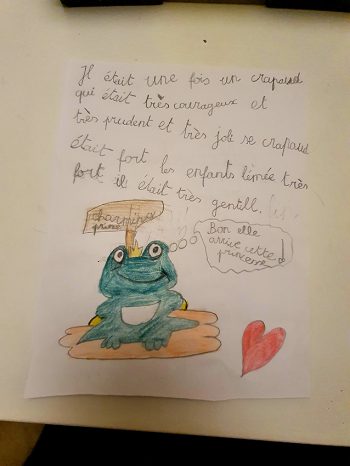 Il était une fois un crapaud
qui était très courageux et
très prudent et très joli se crapaud
était fort les enfants l'émée très
fort il était très gentill.
charming
prince
Bon elle
arrive cette
princesse